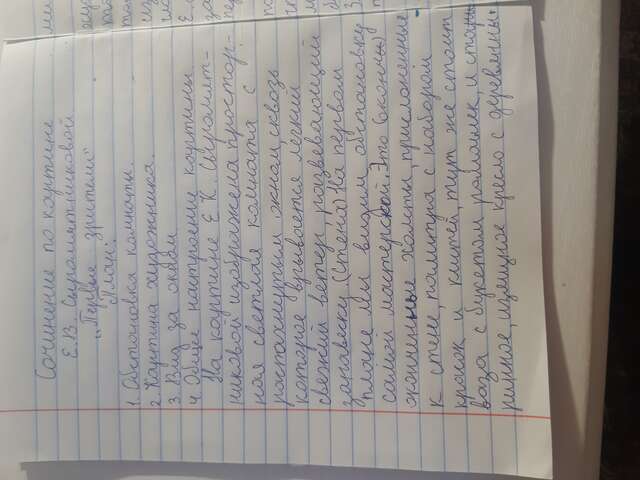 Сочинение по картине
Е.В. Сыромятниковой
"Первые зрители"
План:
1. Обстановка комнаты.
2. Картина художника.
3. Вид за окном
4. Общее настроение картины.
На картине Е. К. Сыромят-
никовой изображена простор-
ная светлая комната с
распахнутым окном сквозь
которое врывается лёгкий
свежий ветер, развевающий
занавеску (Стено) На первом
плане мы видим обстановку
самой мастерской. Это (оконны)
оконненные холсты, прислоненные
к стене, палитра с набором
красок и кистей, тут же стоит
ваза с букетом ромашек, и стары
ринное, изящное кресло с деревянны